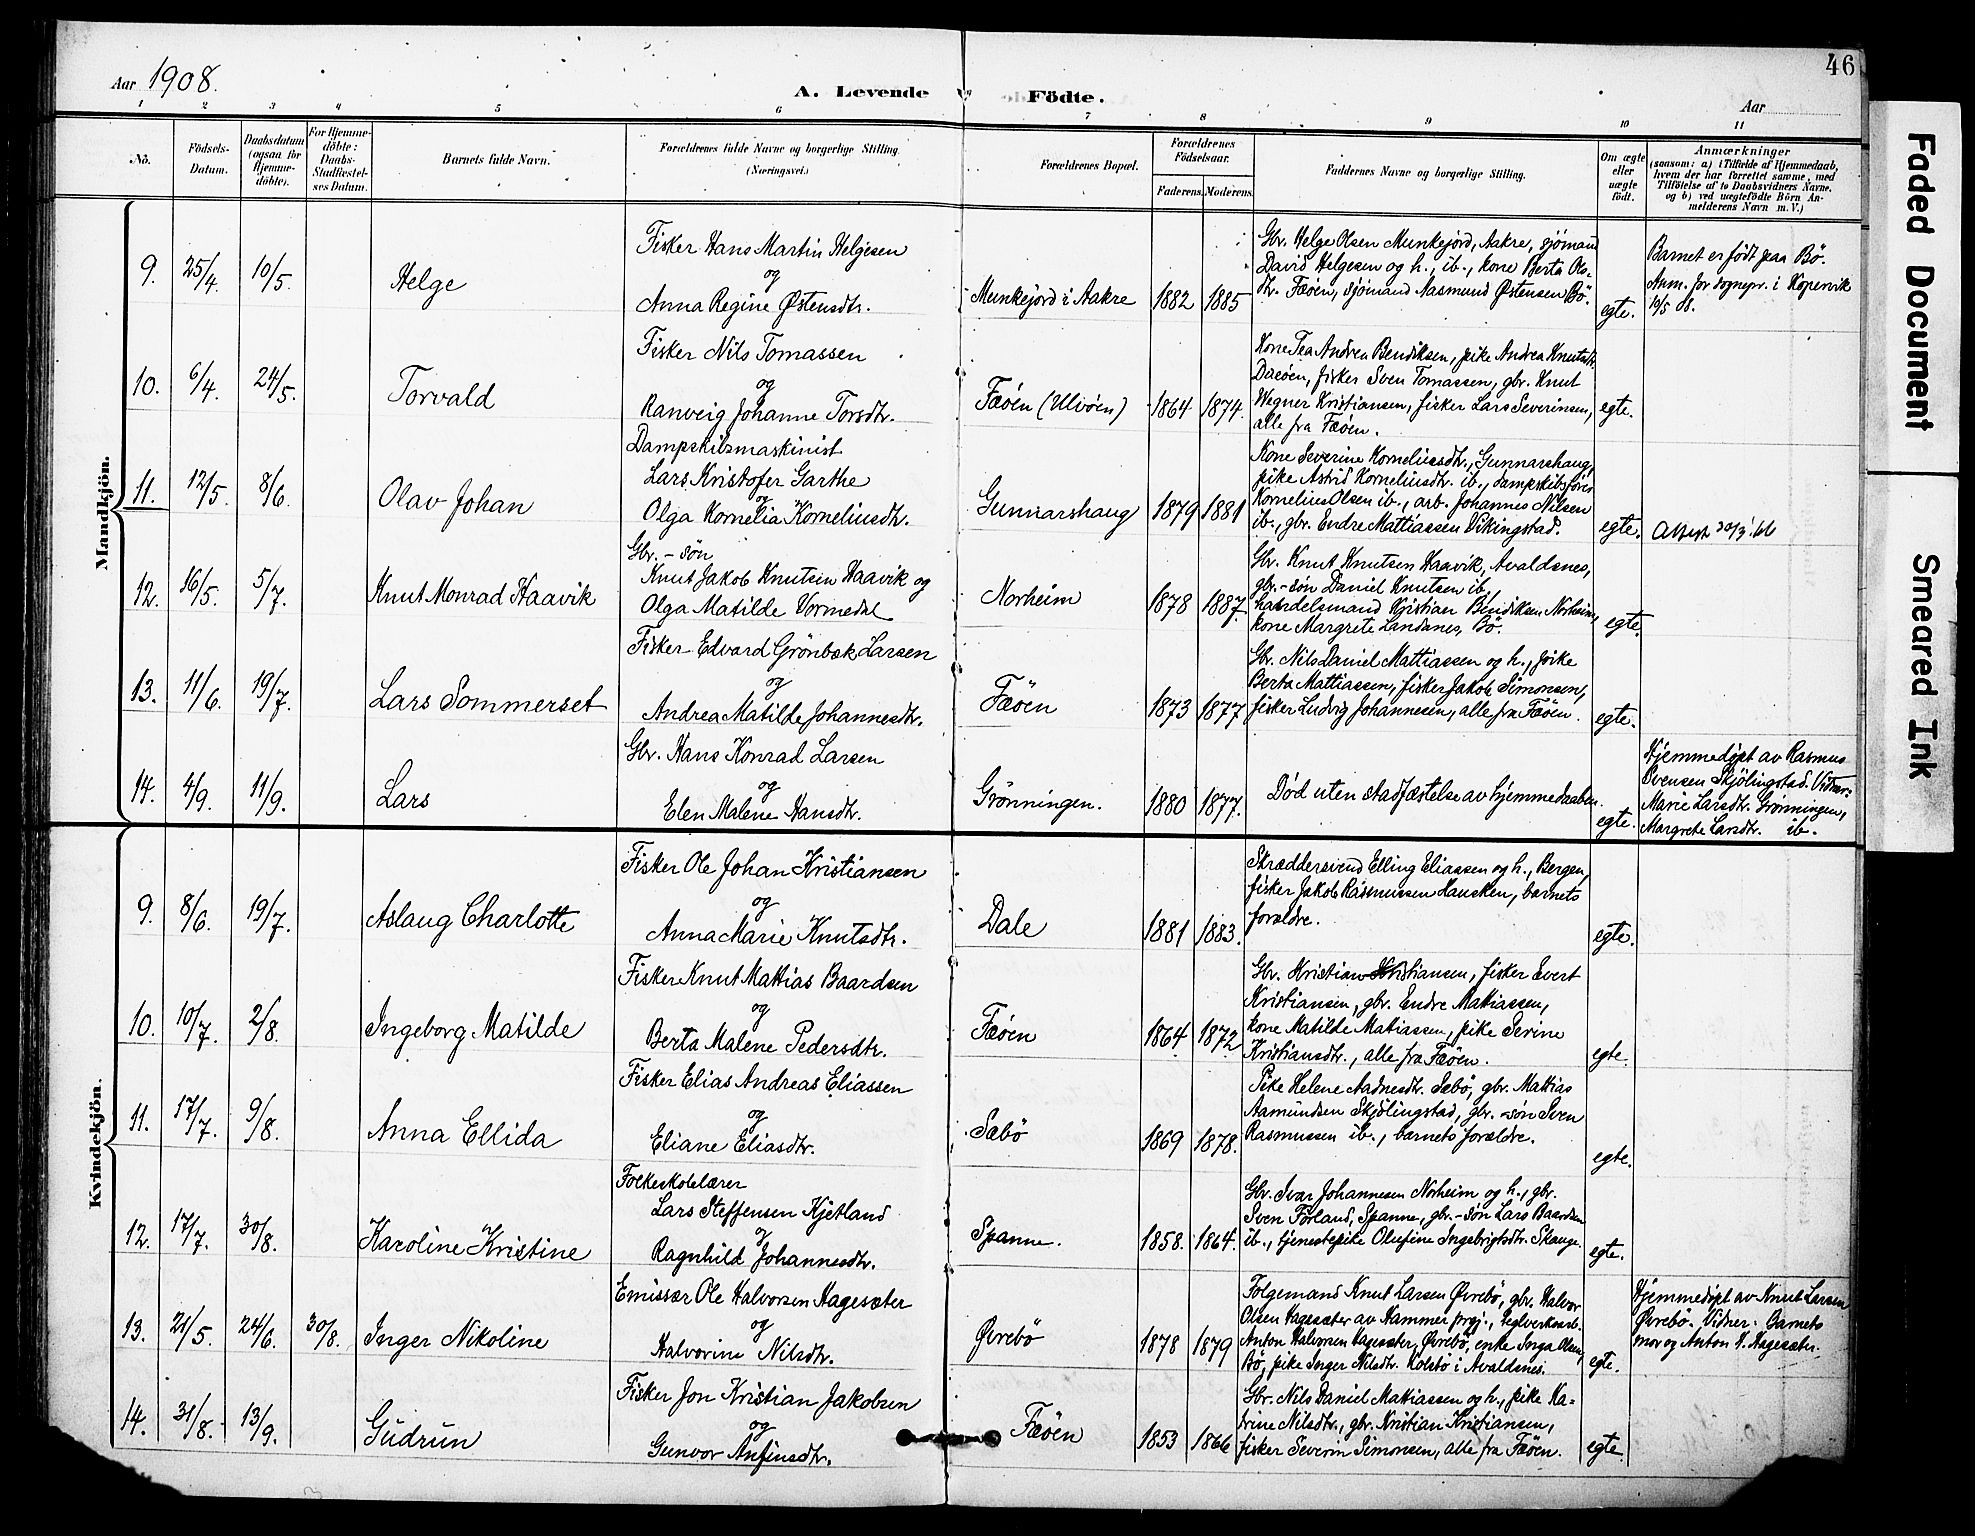 46
Aar 1908.
A. Levende Födte.
Aar
1 2 3 4 5 6 7 8 9 10 11
No.
Födsels-
Datum.
Daabsdatum
(ogsaa for
Hjemme-
döbte).
For Hjemme-
döbte:
Daabs-
Stadfæstel-
ses Datum.
Barnets fulde Navn.
Forældrenes fulde Navne og borgerlige Stilling
(Næringsvei.)
Forældrenes Bopæl.
Forældrenes
Födselsaar.
Faderens. Moderens.
Faddernes Navne og borgerlige Stilling.
Om ægte
eller
uægte
født.
Anmærkninger
(saasom: a) i Tilfælde af Hjemmedaab,
hvem der har forrettet samme, med
Tilföielse af to Daabsvidners Navne.
og b) ved uægtefödte Börn An-
melderens Navn m. V.)
Mandkjön.
9. 25/4. 10/5. Helge
Fisker Hans Martin Helgesen
og
Anna Regine Østensdtr.
Munkejord i Aakre 1882 1885
Gbr. Helge Olsen Munkejord, Aakre, sjømand
David Helgesen og h., ib., kone Berta Ols-
dtr. Fæøen, sjømand Aasmund Østensen Bö.
egte.
Barnet er født paa Bö.
Anm. for sognepr. i Kopervik
10/5 08.
10. 6/4. 24/5. Torvald
Fisker Nils Tomassen
og
Ranveig Johanne Torsdtr.
Fæöen (Ulvöen) 1864 1874.
Kone Tea Andrea Bendiksen, pike Andrea Knutsdtr.
fisker Sven Tomassen, gbr. Knut
Wegner Kristiansen, fisker Lars Severinsen,
alle fra Fæöen.
egte.
11. 12/5. 8/6. Olav Johan
Dampskibsmaskinist
Lars Kristofer Garthe
og
Olga Kornelia Korneliusdtr.
Gunnarshaug 1879 1881
Kone Severine Korneliusdtr., Gunnarshaug,
pike Astrid Korneliusdtr. ib., dampskibsfører
Kornelius Olsen ib., arb. Johannes Nilsen
ib., gbr. Endre Mattiassen Vikingstad.
egte.
Attest 30/3 '66
12. 16/5. 5/7. Knut Monrad Haavik
Gbr. - søn
Knut Jakob Knutsen Haavik og
Olga Matilde Vormedal
Norheim 1878 1887.
Gbr. Knut Knutsen Haavik, Avaldsnes,
gbr.-søn Daniel Knutsen ib.,
handelsmand Kristian Bendiksen Norheim,
kone Margrete Landanes, Bö.
egte.
13. 11/6. 19/7. Lars Sommerset
Fisker Edvard Grönbæk Larsen
og
Andrea Matilde Johannesdtr.
Fæöen 1873 1877
Gbr. Nils Daniel Mattiassen og h., pike
Berta Mattiassen, fisker Jakob Simonsen,
fisker Ludvig Johannesen, alle fra Fæöen.
egte.
14. 4/9. 11/9. Lars
Gbr. Hans Konrad Larsen
og
Elen Malene Hansdtr.
Grönningen. 1880 1877.
Død uten stadfæstelse av hjemmedaaben.
egte.
Hjemmedøpt av Rasmus
Svensen Skjölingstad. Vidner:
Marie Larsdtr. Grönningen,
Margrete Larsdtr. ib.
Kvindekjön.
9. 8/6. 19/7. Aslaug Charlotte
Fisker Ole Johan Kristiansen
og
Anna Marie Knutsdtr.
Dale 1881 1883.
Skræddersvend Elling Eliassen og h., Bergen,
fisker Jakob Rasmussen Hausken, barnets
forældre.
egte.
10. 10/7. 2/8. Ingeborg Matilde
Fisker Knut Mattias Baardsen
og
Berta Malene Pedersdtr.
Fæöen 1864 1872
Gbr. Kristian Kristiansen, fisker Evert
Kristiansen, gbr. Endre Mattiassen,
kone Matilde Matiassen, pike Serine
Kristiansdtr., alle fra Fæöen.
egte.
11. 17/7. 9/8. Anna Ellida
Fisker Elias Andreas Eliassen
og
Eliane Eliasdtr.
Sæbö 1869 1878.
Pike Helene Aadnesdtr. Sæbö, gbr. Mattias
Aamundsen Skjölingstad, gbr.-søn Sven
Rasmussen ib., barnets forældre.
egte.
12. 17/7. 30/8. Karoline Kristine
Folkeskolelærer
Lars Steffensen Kjetland
og
Ragnhild Johannesdtr.
Spanne. 1858. 1864.
Gbr. Ivar Johannesen Norheim og h., gbr.
Sven Förland, Spanne, gbr.-søn Lars Baardsen
ib., tjenestepike Olufine Ingebrigtsdtr. Skauge.
egte.
13. 21/5. 24/6. 30/8. Inger Nikoline
Emissær Ole Halvorsen Hagesæter
og
Halvorine Nilsdtr.
Øvrebö 1878 1879
Følgemand Knut Larsen Øvrebö, gbr. Halvor
Olsen Hagesæter av Hammer prgj., teglverksarb.
Anton Halvorsen Hagesæter, Øvrebö, enke Inga Olsen,
Bö, pike Inger Nilsdtr. Kolstö i Avaldsnes.
egte.
Hjemmedøpt av Knut Larsen
Øvrebö. Vidner: Barnets
mor og Anton H. Hagesæter.
14. 31/8. 13/9. Gudrun
Fisker Jon Kristian Jakobsen
og
Gunvor Anfinsdtr.
Fæöen 1853 1866
Gbr. Nils Daniel Mattiassen og h., pike Ka-
trine Nilsdtr., gbr. Kristian Kristiansen,
fisker Severin Simonsen, alle fra Fæöen.
egte.
Faded Document
Smeared Ink